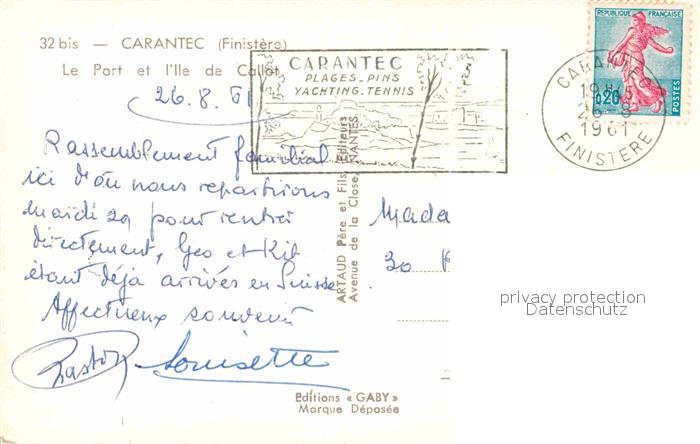 32 bis — CARANTEC (Finistère)
Le Port et l'Ile de Callot
26.8.61
CARANTEC
PLAGES-PINS
YACHTING-TENNIS
REPUBLIQUE FRANÇAISE
0,20
POSTES
CARANTEC
19H15
26-8
1961
FINISTERE
Rassemblement familial
ici d'où nous repartirons
mardi 29 pour rentrer
directement, Geo et Kit
étant déjà arrivés en Suisse
Affectueux souvenir
Louisette
ARTAUD Père et Fils, Editeurs
Avenue de la Close, NANTES
Mada
30
privacy protection
Datenschutz
Editions « GABY »
Marque Déposée